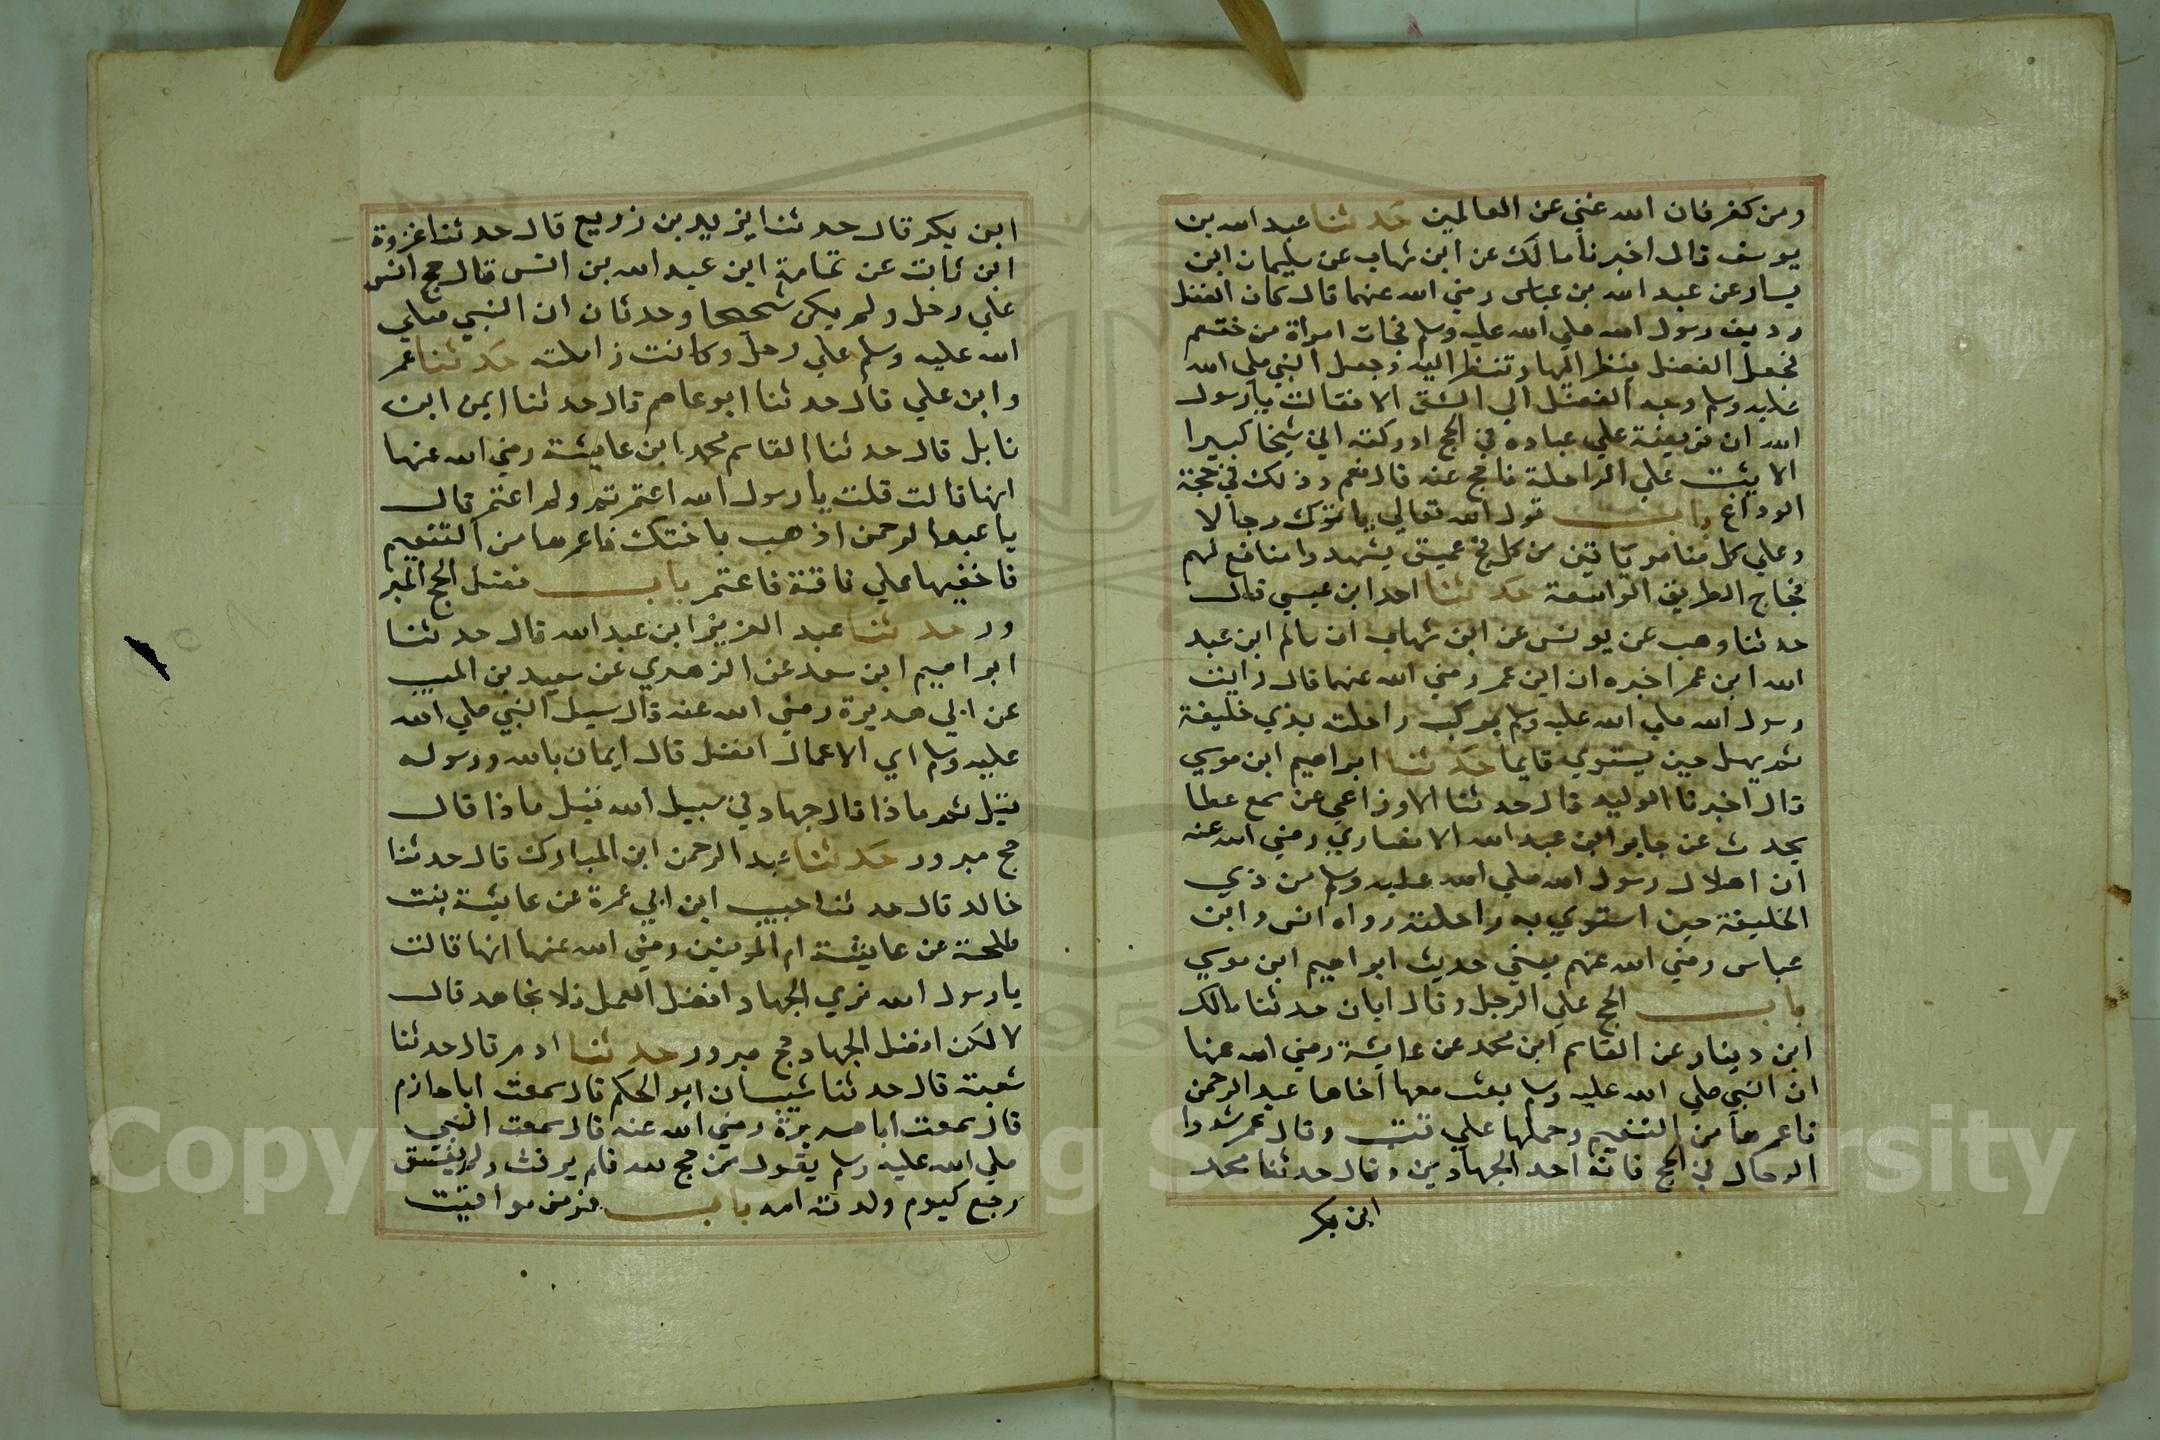 ومن كفر فان الله غني عن العالمين حدثنا عبد الله بن
يوسف قال اخبرنا مالك عن ابن شهاب عن سليمان ابن
يسار عن عبد الله بن عباس رضي الله عنهما قال كان الفضل
رديف رسول الله صلي الله عليه وسلم فجات امراة من خثعم
فجعل الفضل ينظر اليها وتنظر اليه وجعل النبي صلي الله
عليه وسلم وجه الفضل الي الشق الا فقالت يا رسول
الله ان فريضة علي عباده في الحج ادركته ابي شيخا كبيرا
الا يثبت علي الراحلة فاحج عنه قال نعم وذلك في حجة
الوداع باب قول الله تعالي ياتوك رجالا
وعلي كل ضامر ياتين من كل فج عميق يشهدوا منافع لهم
فجاج الطريق الواسعة حدثنا احمد ابن عيسي قال
حدثنا وهب عن يونس عن ابن شهاب ان سالم ابن عبد
الله ابن عمر اخبره ان ابن عمر رضي الله عنهما قال رايت
رسول الله صلي الله عليه وسلم يركب راحلته بذي خليفة
ثم يهل حين يستوي قايما حدثنا ابراهيم ابن موسي
قال اخبرنا الوليد قال حدثنا الاوزاعي عن سمع عطا
يحدث عن جابر ابن عبد الله الانصاري رضي الله عنه
ان اهلال رسول الله صلي الله عليه وسلم من ذي
الخليفة حين استوي به راحلته رواه انس وابن
عباس رضي الله عنهم يعني حديث ابراهيم ابن موسي
باب الحج علي الرحل وقال ابان حدثنا مالك
ابن دينار عن القاسم ابن محمد عن عايشة رضي الله عنها
ان النبي صلي الله عليه وسلم بعث معها اخاها عبد الرحمن
فاعمرها من التنعيم وحملها علي قتب وقال عمر شدوا
الرحال في الحج فانه احد الجهادين وقال حدثنا محمد
ابن بكر
ابن بكر قال حدثنا يزيد بن زريع قال حدثنا عزوة
ابن ثابت عن ثمامة ابن عبد الله بن انس قال حج انس
علي رحل ولم يكن شحيحا وحدثان ان النبي صلي
الله عليه وسلم علي رحل وكانت زاملته حدثنا عمر
وابن علي قال حدثنا ابو عاصم قال حدثنا ايمن ابن
نابل قال حدثنا القاسم محمد ابن عايشة رضي الله عنها
انها قالت قلت يا رسول الله اعتمرتم ولم اعتمر قال
يا عبد الرحمن اذهب باختك فاعمرها من التنعيم
فاحقبها علي ناقة فاعتمر باب فضل الحج المبر
ور حدثنا عبد العزيز ابن عبد الله قال حدثنا
ابراهيم ابن سعد عن الزهدي عن سعيد بن المسيب
عن ابي هديرة رضي الله عنه قال سيل النبي صلي الله
عليه وسلم اي الاعمال افضل قال ايمان بالله ورسوله
قيل ثم ماذا قال جهاد في سبيل الله قيل ماذا قال
حج مبرور حدثنا عبد الرحمن ابن المبارك قال حدثنا
خالد قال حدثنا حبيب ابن ابي عمرة عن عايشة بنت
طلحة عن عايشة ام المومنين رضي الله عنها انها قالت
يا رسول الله نري الجهاد افضل العمل فلا نجاهد قال
لا لكن افضل الجهاد حج مبرور حدثنا ادم قال حدثنا
شعبة قال حدثنا شيسان ابو الحكم قال سمعت ابا حازم
قال سمعت ابا هريرة رضي الله عنه قال سمعت النبي
صلي الله عليه وسلم يقول من حج لله فلم يرفث ولم يفسق
رجع كيوم ولدته امه باب فرض مواقيت
Copyright King Saud University